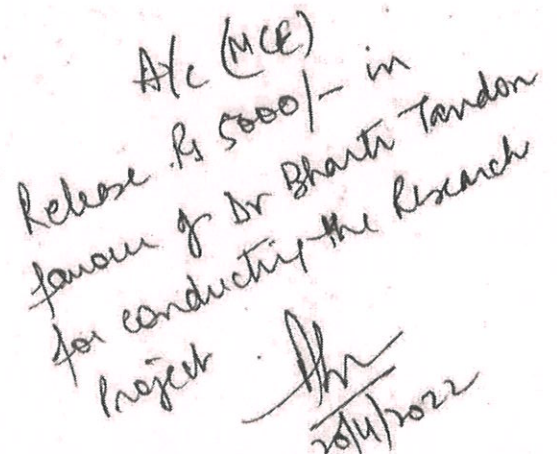 A/c (MCE)
Release Rs 5000/- in
favour of Dr Bharti Tandon
for conducting the Research
Project
2022